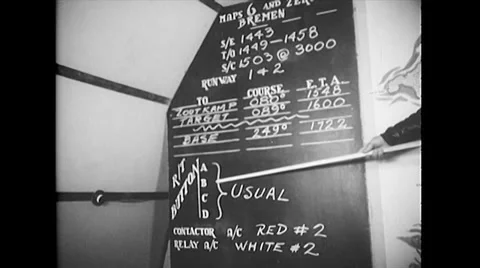 MAPS 6 AND ZERO
BREMEN
S/E 1443
T/O 1449–1458
S/C 1503 @ 3000
RUNWAY 1 & 2
TO COURSE E.T.A.
ZOOTKAMP 080° 1548
TARGET 089° 1600
BASE 249° 1722
R/T BUTTON
A
B
C
D
USUAL
CONTACTOR a/c RED #2
RELAY a/c WHITE #2